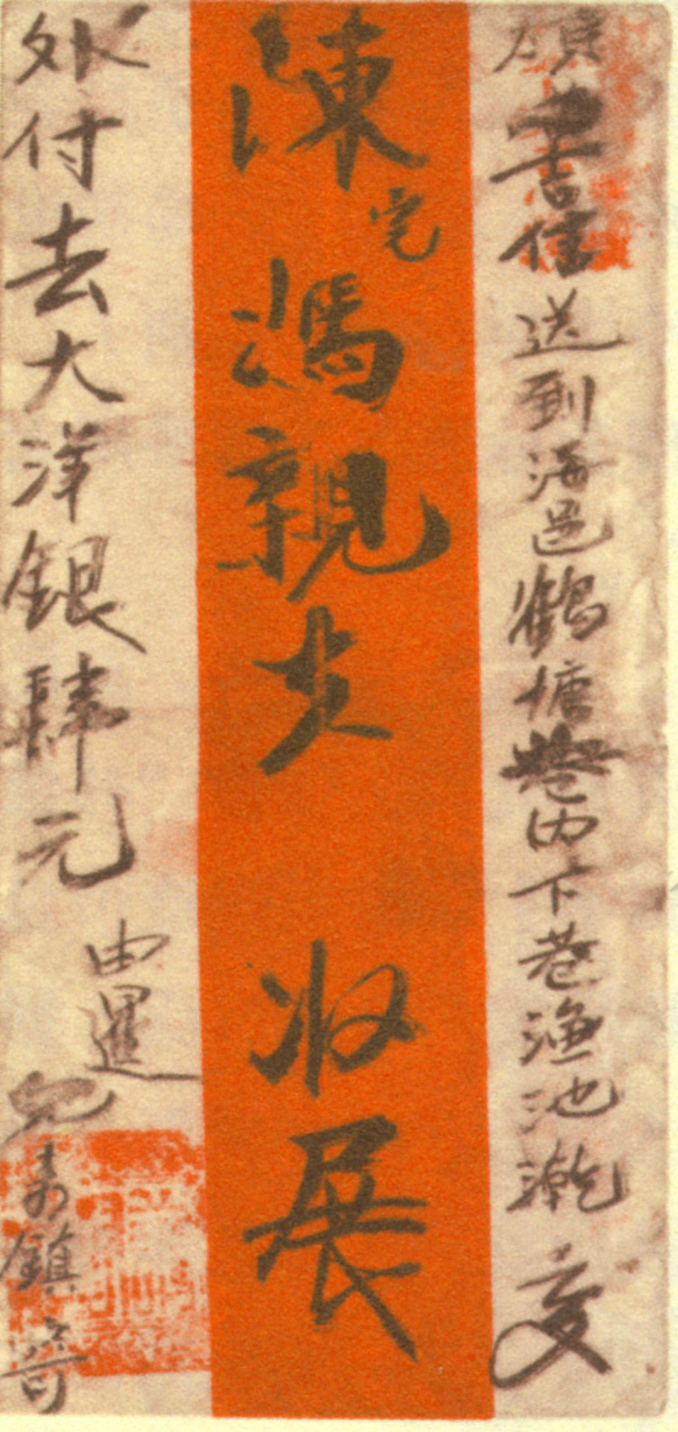 書信送到海邑鶴塘巷內下巷漁池乾交
陳宅馮親夫收展
外付去大洋銀肆元
由暹
兒壽鎮寄